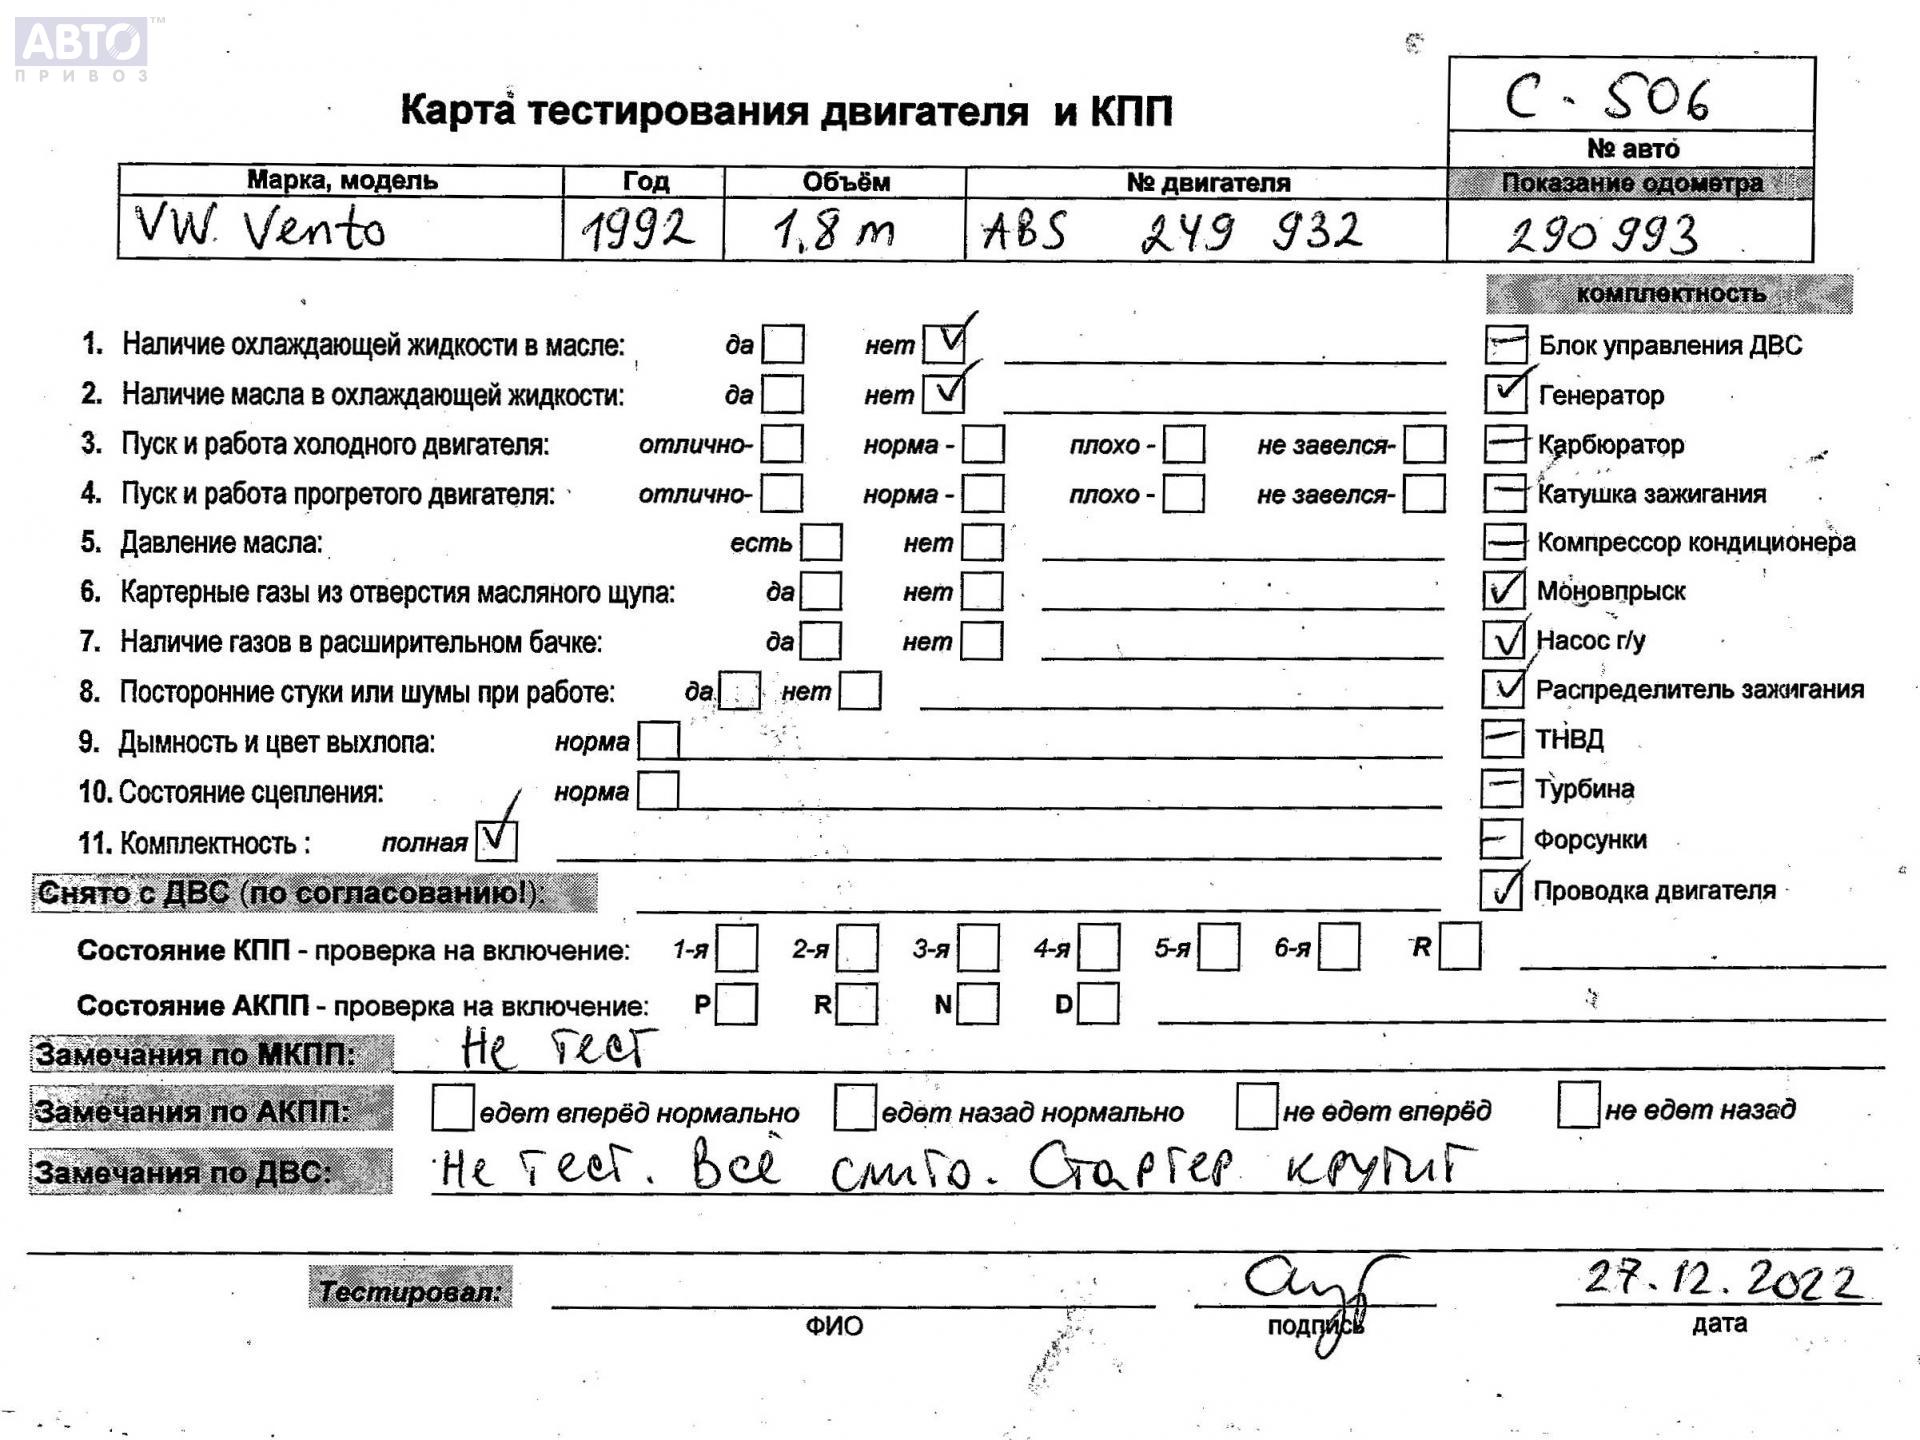 АВТО™
ПРИВОЗ
С - 506
№ авто
Карта тестирования двигателя и КПП
Марка, модель Год Объём № двигателя Показание одометра
VW. Vento 1992 1,8 m ABS 249 932 290 993
комплектность
1. Наличие охлаждающей жидкости в масле: да нет ✓
Блок управления ДВС
2. Наличие масла в охлаждающей жидкости: да нет ✓
✓ Генератор
3. Пуск и работа холодного двигателя: отлично- норма - плохо - не завелся-
Карбюратор
4. Пуск и работа прогретого двигателя: отлично- норма - плохо - не завелся-
Катушка зажигания
5. Давление масла: есть нет
Компрессор кондиционера
6. Картерные газы из отверстия масляного щупа: да нет
✓ Моновпрыск
7. Наличие газов в расширительном бачке: да нет
✓ Насос г/у
8. Посторонние стуки или шумы при работе: да нет
✓ Распределитель зажигания
9. Дымность и цвет выхлопа: норма
ТНВД
10. Состояние сцепления: норма
Турбина
11. Комплектность : полная ✓
Форсунки
Снято с ДВС (по согласованию!):
✓ Проводка двигателя
Состояние КПП - проверка на включение: 1-я 2-я 3-я 4-я 5-я 6-я R
Состояние АКПП - проверка на включение: P R N D
Замечания по МКПП: Не тест
Замечания по АКПП: едет вперёд нормально едет назад нормально не едет вперёд не едет назад
Замечания по ДВС: Не тест. Всё слито. Стартер крутит
Тестировал: 27.12.2022
ФИО подпись дата